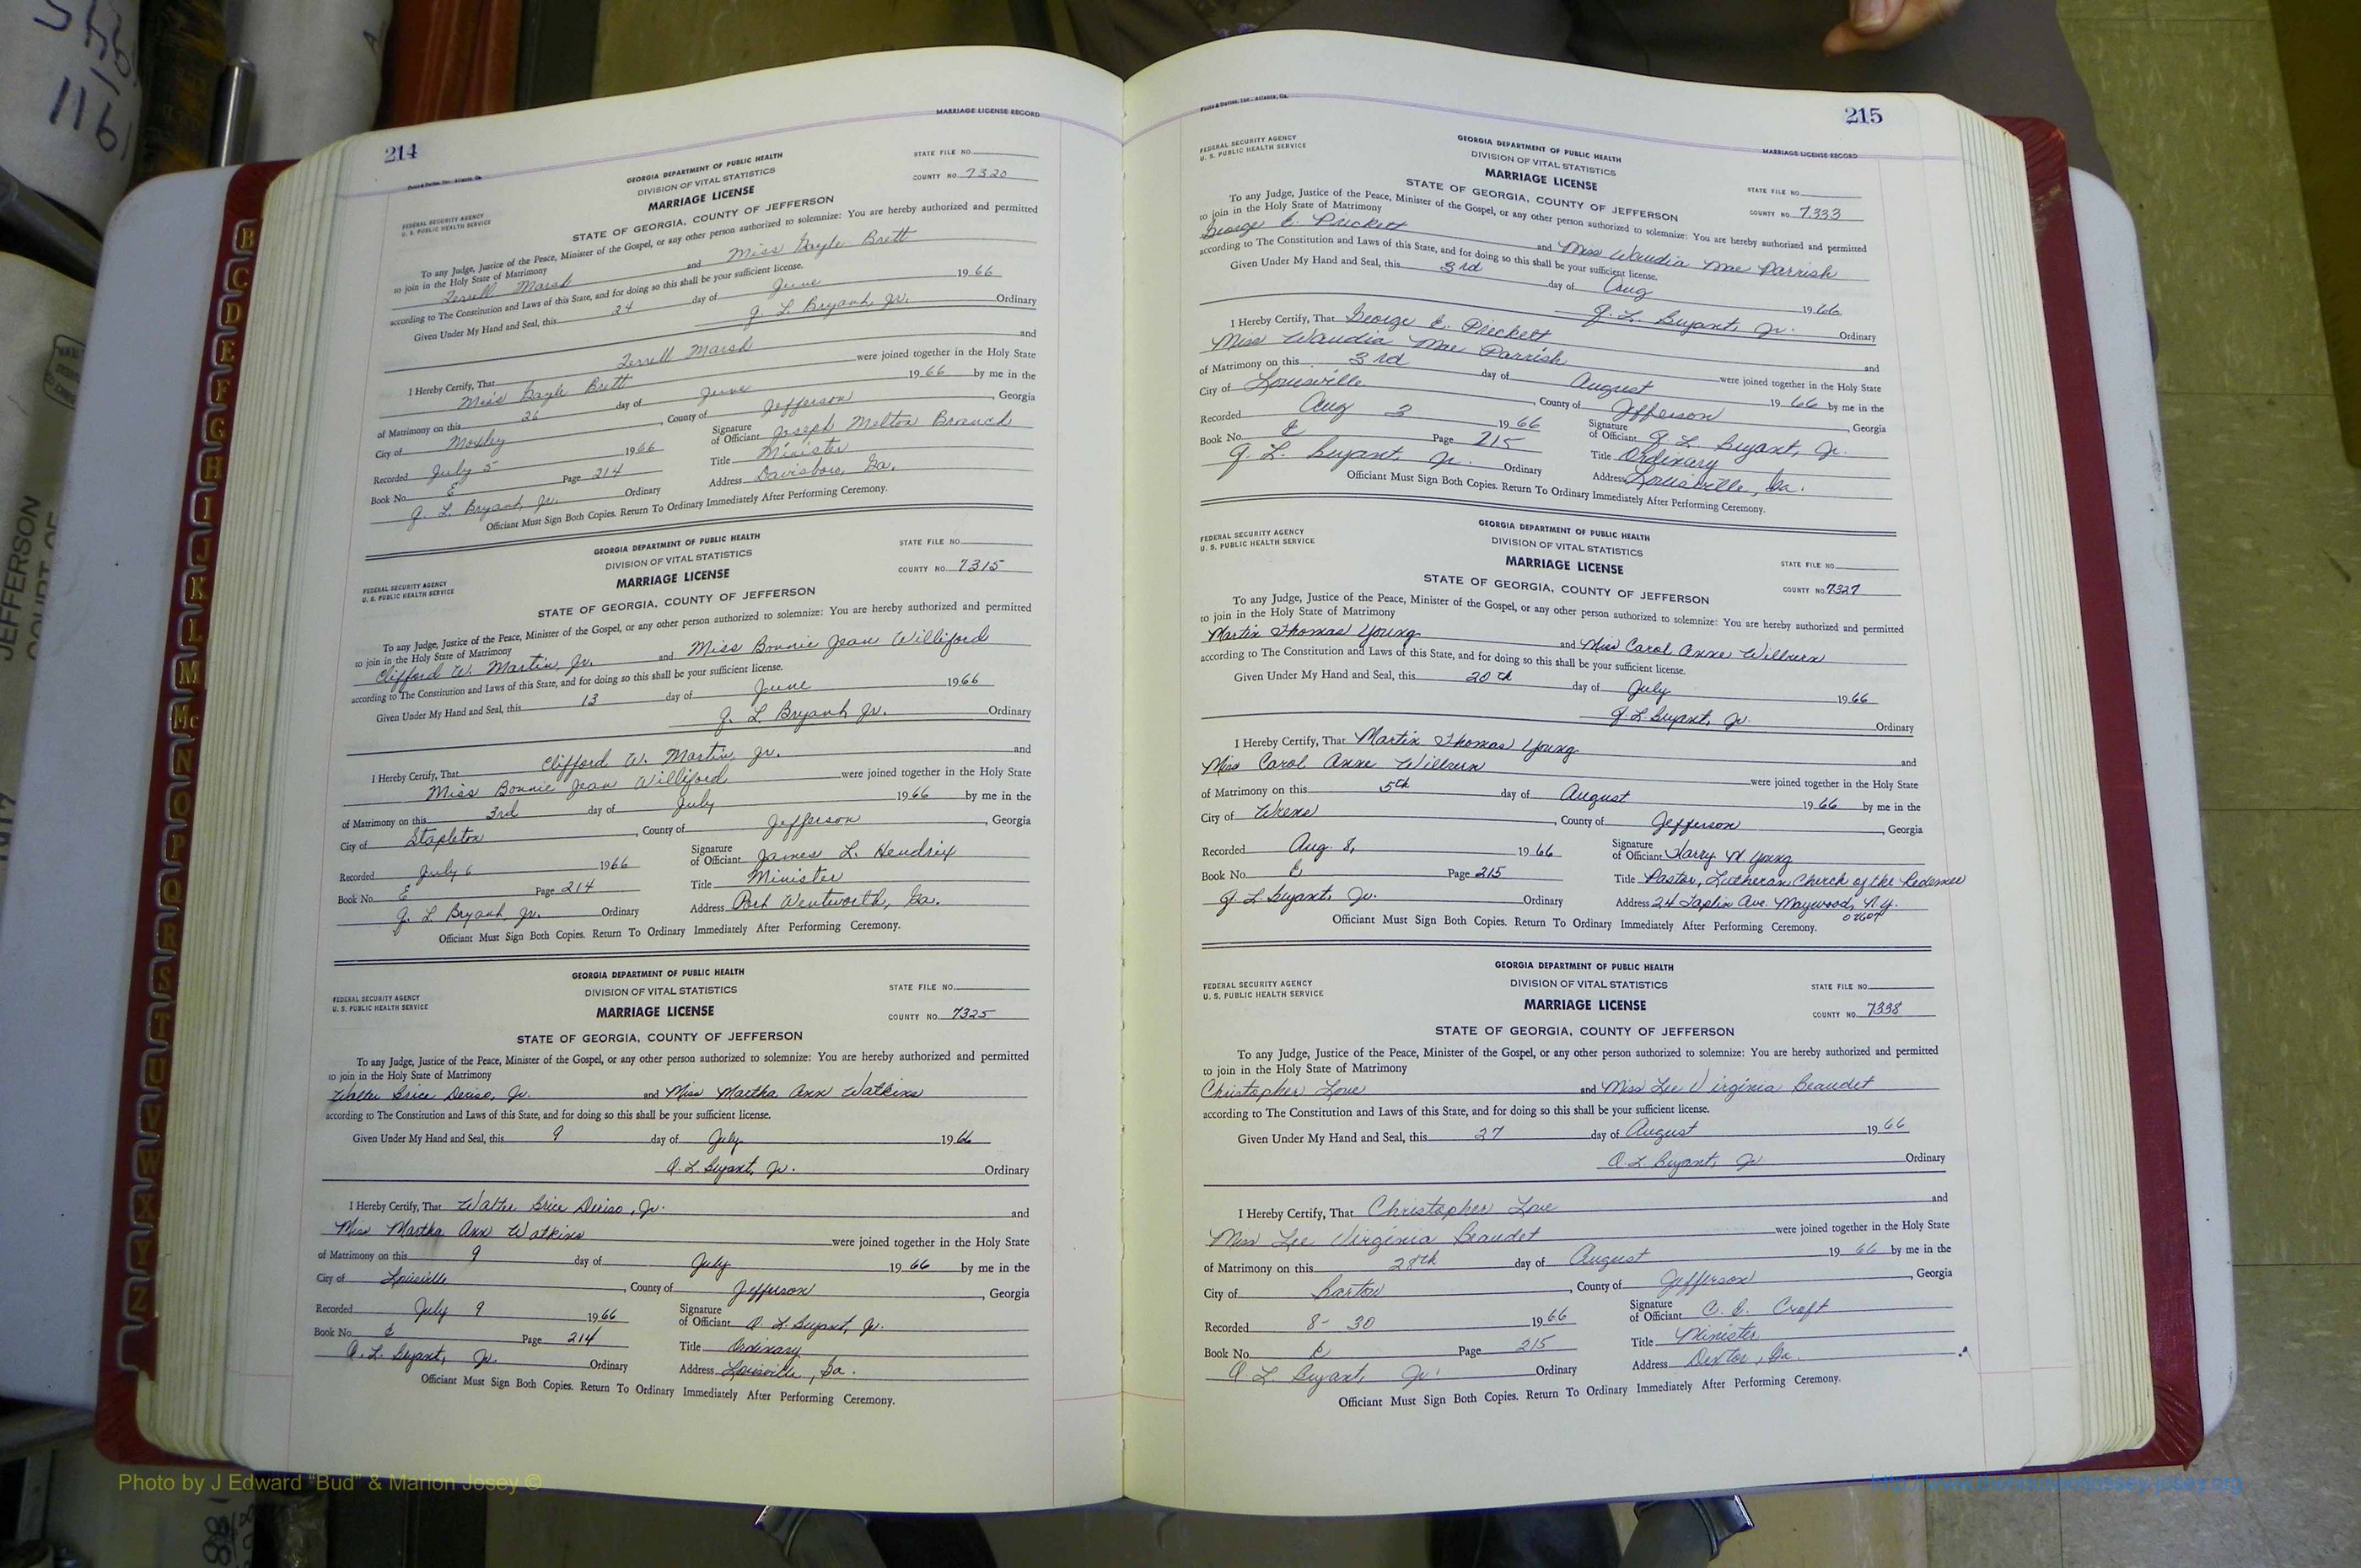 214
MARRIAGE LICENSE RECORD
FEDERAL SECURITY AGENCY
U. S. PUBLIC HEALTH SERVICE
GEORGIA DEPARTMENT OF PUBLIC HEALTH
DIVISION OF VITAL STATISTICS
MARRIAGE LICENSE
STATE OF GEORGIA, COUNTY OF JEFFERSON
STATE FILE NO.
COUNTY NO. 7320
To any Judge, Justice of the Peace, Minister of the Gospel, or any other person authorized to solemnize: You are hereby authorized and permitted
to join in the Holy State of Matrimony
Terrell Marsh and Miss Gayle Brett
according to The Constitution and Laws of this State, and for doing so this shall be your sufficient license.
Given Under My Hand and Seal, this 24 day of June 1966
J. L. Bryant, Jr. Ordinary
I Hereby Certify, That Terrell Marsh and
Miss Gayle Brett were joined together in the Holy State
of Matrimony on this 26 day of June 1966 by me in the
City of Moxley, County of Jefferson, Georgia
Recorded July 5 1966 Signature of Officiant Joseph Melton Branch
Book No. E Page 214 Title Minister
J. L. Bryant, Jr. Ordinary Address Davisboro, Ga.
Officiant Must Sign Both Copies. Return To Ordinary Immediately After Performing Ceremony.
FEDERAL SECURITY AGENCY
U. S. PUBLIC HEALTH SERVICE
GEORGIA DEPARTMENT OF PUBLIC HEALTH
DIVISION OF VITAL STATISTICS
MARRIAGE LICENSE
STATE OF GEORGIA, COUNTY OF JEFFERSON
STATE FILE NO.
COUNTY NO. 7315
To any Judge, Justice of the Peace, Minister of the Gospel, or any other person authorized to solemnize: You are hereby authorized and permitted
to join in the Holy State of Matrimony
Clifford W. Martin, Jr. and Miss Bonnie Jean Williford
according to The Constitution and Laws of this State, and for doing so this shall be your sufficient license.
Given Under My Hand and Seal, this 13 day of June 1966
J. L. Bryant, Jr. Ordinary
I Hereby Certify, That Clifford W. Martin, Jr. and
Miss Bonnie Jean Williford were joined together in the Holy State
of Matrimony on this 3rd day of July 1966 by me in the
City of Stapleton, County of Jefferson, Georgia
Recorded July 6 1966 Signature of Officiant James L. Hendrix
Book No. E Page 214 Title Minister
J. L. Bryant, Jr. Ordinary Address Port Wentworth, Ga.
Officiant Must Sign Both Copies. Return To Ordinary Immediately After Performing Ceremony.
FEDERAL SECURITY AGENCY
U. S. PUBLIC HEALTH SERVICE
GEORGIA DEPARTMENT OF PUBLIC HEALTH
DIVISION OF VITAL STATISTICS
MARRIAGE LICENSE
STATE OF GEORGIA, COUNTY OF JEFFERSON
STATE FILE NO.
COUNTY NO. 7325
To any Judge, Justice of the Peace, Minister of the Gospel, or any other person authorized to solemnize: You are hereby authorized and permitted
to join in the Holy State of Matrimony
Walter Brice Deriso, Jr. and Miss Martha Ann Watkins
according to The Constitution and Laws of this State, and for doing so this shall be your sufficient license.
Given Under My Hand and Seal, this 9 day of July 1966
Q. L. Bryant, Jr. Ordinary
I Hereby Certify, That Walter Brice Deriso, Jr. and
Miss Martha Ann Watkins were joined together in the Holy State
of Matrimony on this 9 day of July 1966 by me in the
City of Louisville, County of Jefferson, Georgia
Recorded July 9 1966 Signature of Officiant Q. L. Bryant, Jr.
Book No. E Page 214 Title Ordinary
Q. L. Bryant, Jr. Ordinary Address Louisville, Ga.
Officiant Must Sign Both Copies. Return To Ordinary Immediately After Performing Ceremony.
Foote & Davies, Inc., Atlanta, Ga.
215
MARRIAGE LICENSE RECORD
FEDERAL SECURITY AGENCY
U. S. PUBLIC HEALTH SERVICE
GEORGIA DEPARTMENT OF PUBLIC HEALTH
DIVISION OF VITAL STATISTICS
MARRIAGE LICENSE
STATE OF GEORGIA, COUNTY OF JEFFERSON
STATE FILE NO.
COUNTY NO. 7333
To any Judge, Justice of the Peace, Minister of the Gospel, or any other person authorized to solemnize: You are hereby authorized and permitted
to join in the Holy State of Matrimony
George E. Prickett and Miss Waudia Mae Parrish
according to The Constitution and Laws of this State, and for doing so this shall be your sufficient license.
Given Under My Hand and Seal, this 3rd day of Aug 1966
Q. L. Bryant, Jr. Ordinary
I Hereby Certify, That George E. Prickett
Miss Waudia Mae Parrish and
of Matrimony on this 3rd day of August were joined together in the Holy State
City of Louisville, County of Jefferson 1966 by me in the
Georgia
Recorded Aug 3 1966 Signature of Officiant Q. L. Bryant, Jr.
Book No. E Page 215 Title Ordinary
Q. L. Bryant, Jr. Ordinary Address Louisville, Ga.
Officiant Must Sign Both Copies. Return To Ordinary Immediately After Performing Ceremony.
FEDERAL SECURITY AGENCY
U. S. PUBLIC HEALTH SERVICE
GEORGIA DEPARTMENT OF PUBLIC HEALTH
DIVISION OF VITAL STATISTICS
MARRIAGE LICENSE
STATE OF GEORGIA, COUNTY OF JEFFERSON
STATE FILE NO.
COUNTY NO. 7327
To any Judge, Justice of the Peace, Minister of the Gospel, or any other person authorized to solemnize: You are hereby authorized and permitted
to join in the Holy State of Matrimony
Martin Thomas Young and Miss Carol Anne
according to The Constitution and Laws of this State, and for doing so this shall be your sufficient license.
Given Under My Hand and Seal, this 20th day of July 1966
Q. L. Bryant, Jr. Ordinary
I Hereby Certify, That Martin Thomas Young
Miss Carol Anne and
were joined together in the Holy State
of Matrimony on this 5th day of August 1966 by me in the
City of Wrens, County of Jefferson, Georgia
Recorded Aug. 8, 1966 Signature of Officiant Harry W. Young
Book No. E Page 215 Title Pastor, Lutheran Church of the Redeemer
Q. L. Bryant, Jr. Ordinary Address 24 Taplin Ave. Maywood, N.J.
07607
Officiant Must Sign Both Copies. Return To Ordinary Immediately After Performing Ceremony.
FEDERAL SECURITY AGENCY
U. S. PUBLIC HEALTH SERVICE
GEORGIA DEPARTMENT OF PUBLIC HEALTH
DIVISION OF VITAL STATISTICS
MARRIAGE LICENSE
STATE OF GEORGIA, COUNTY OF JEFFERSON
STATE FILE NO.
COUNTY NO. 7338
To any Judge, Justice of the Peace, Minister of the Gospel, or any other person authorized to solemnize: You are hereby authorized and permitted
to join in the Holy State of Matrimony
Christopher Love and Miss Lee Virginia Beaudet
according to The Constitution and Laws of this State, and for doing so this shall be your sufficient license.
Given Under My Hand and Seal, this 27 day of August 1966
Q. L. Bryant, Jr. Ordinary
I Hereby Certify, That Christopher Love and
Miss Lee Virginia Beaudet were joined together in the Holy State
of Matrimony on this 28th day of August 1966 by me in the
City of Bartow, County of Jefferson, Georgia
Recorded 8-30 1966 Signature of Officiant C. E. Croft
Book No. E Page 215 Title Minister
Q. L. Bryant, Jr. Ordinary Address Dexter, Ga.
Officiant Must Sign Both Copies. Return To Ordinary Immediately After Performing Ceremony.
B
C
D
E
F
G
H
I
J
K
L
M
Mc
N
O
P
Q
R
S
T
U
V
W
X
Y
Z
JEFFERSON
Photo by J Edward “Bud” & Marion Josey ©